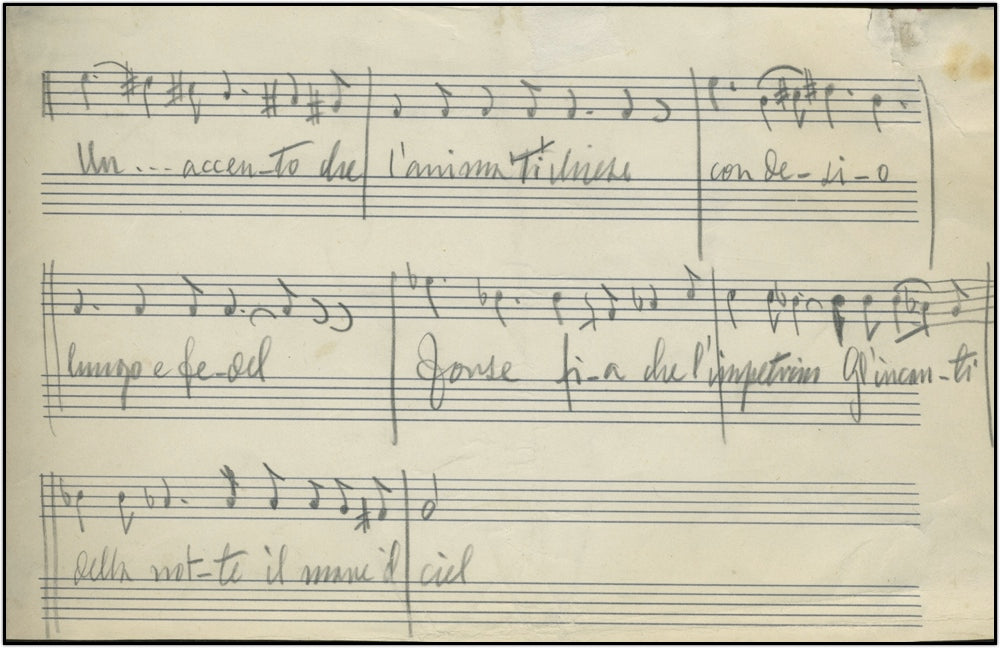 Un ... accen-to che l'anima ti chiese con de-si-o
lungo e fe-del Forse fi-a che l'impetrim Gl'incan-ti
della not-te il mare il ciel